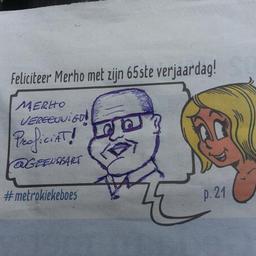 Feliciteer Merho met zijn 65ste verjaardag!
MERHO
VEREEUWIGD!
PROFICIAT!
@GEENSBART
#metrokiekeboes
p. 21